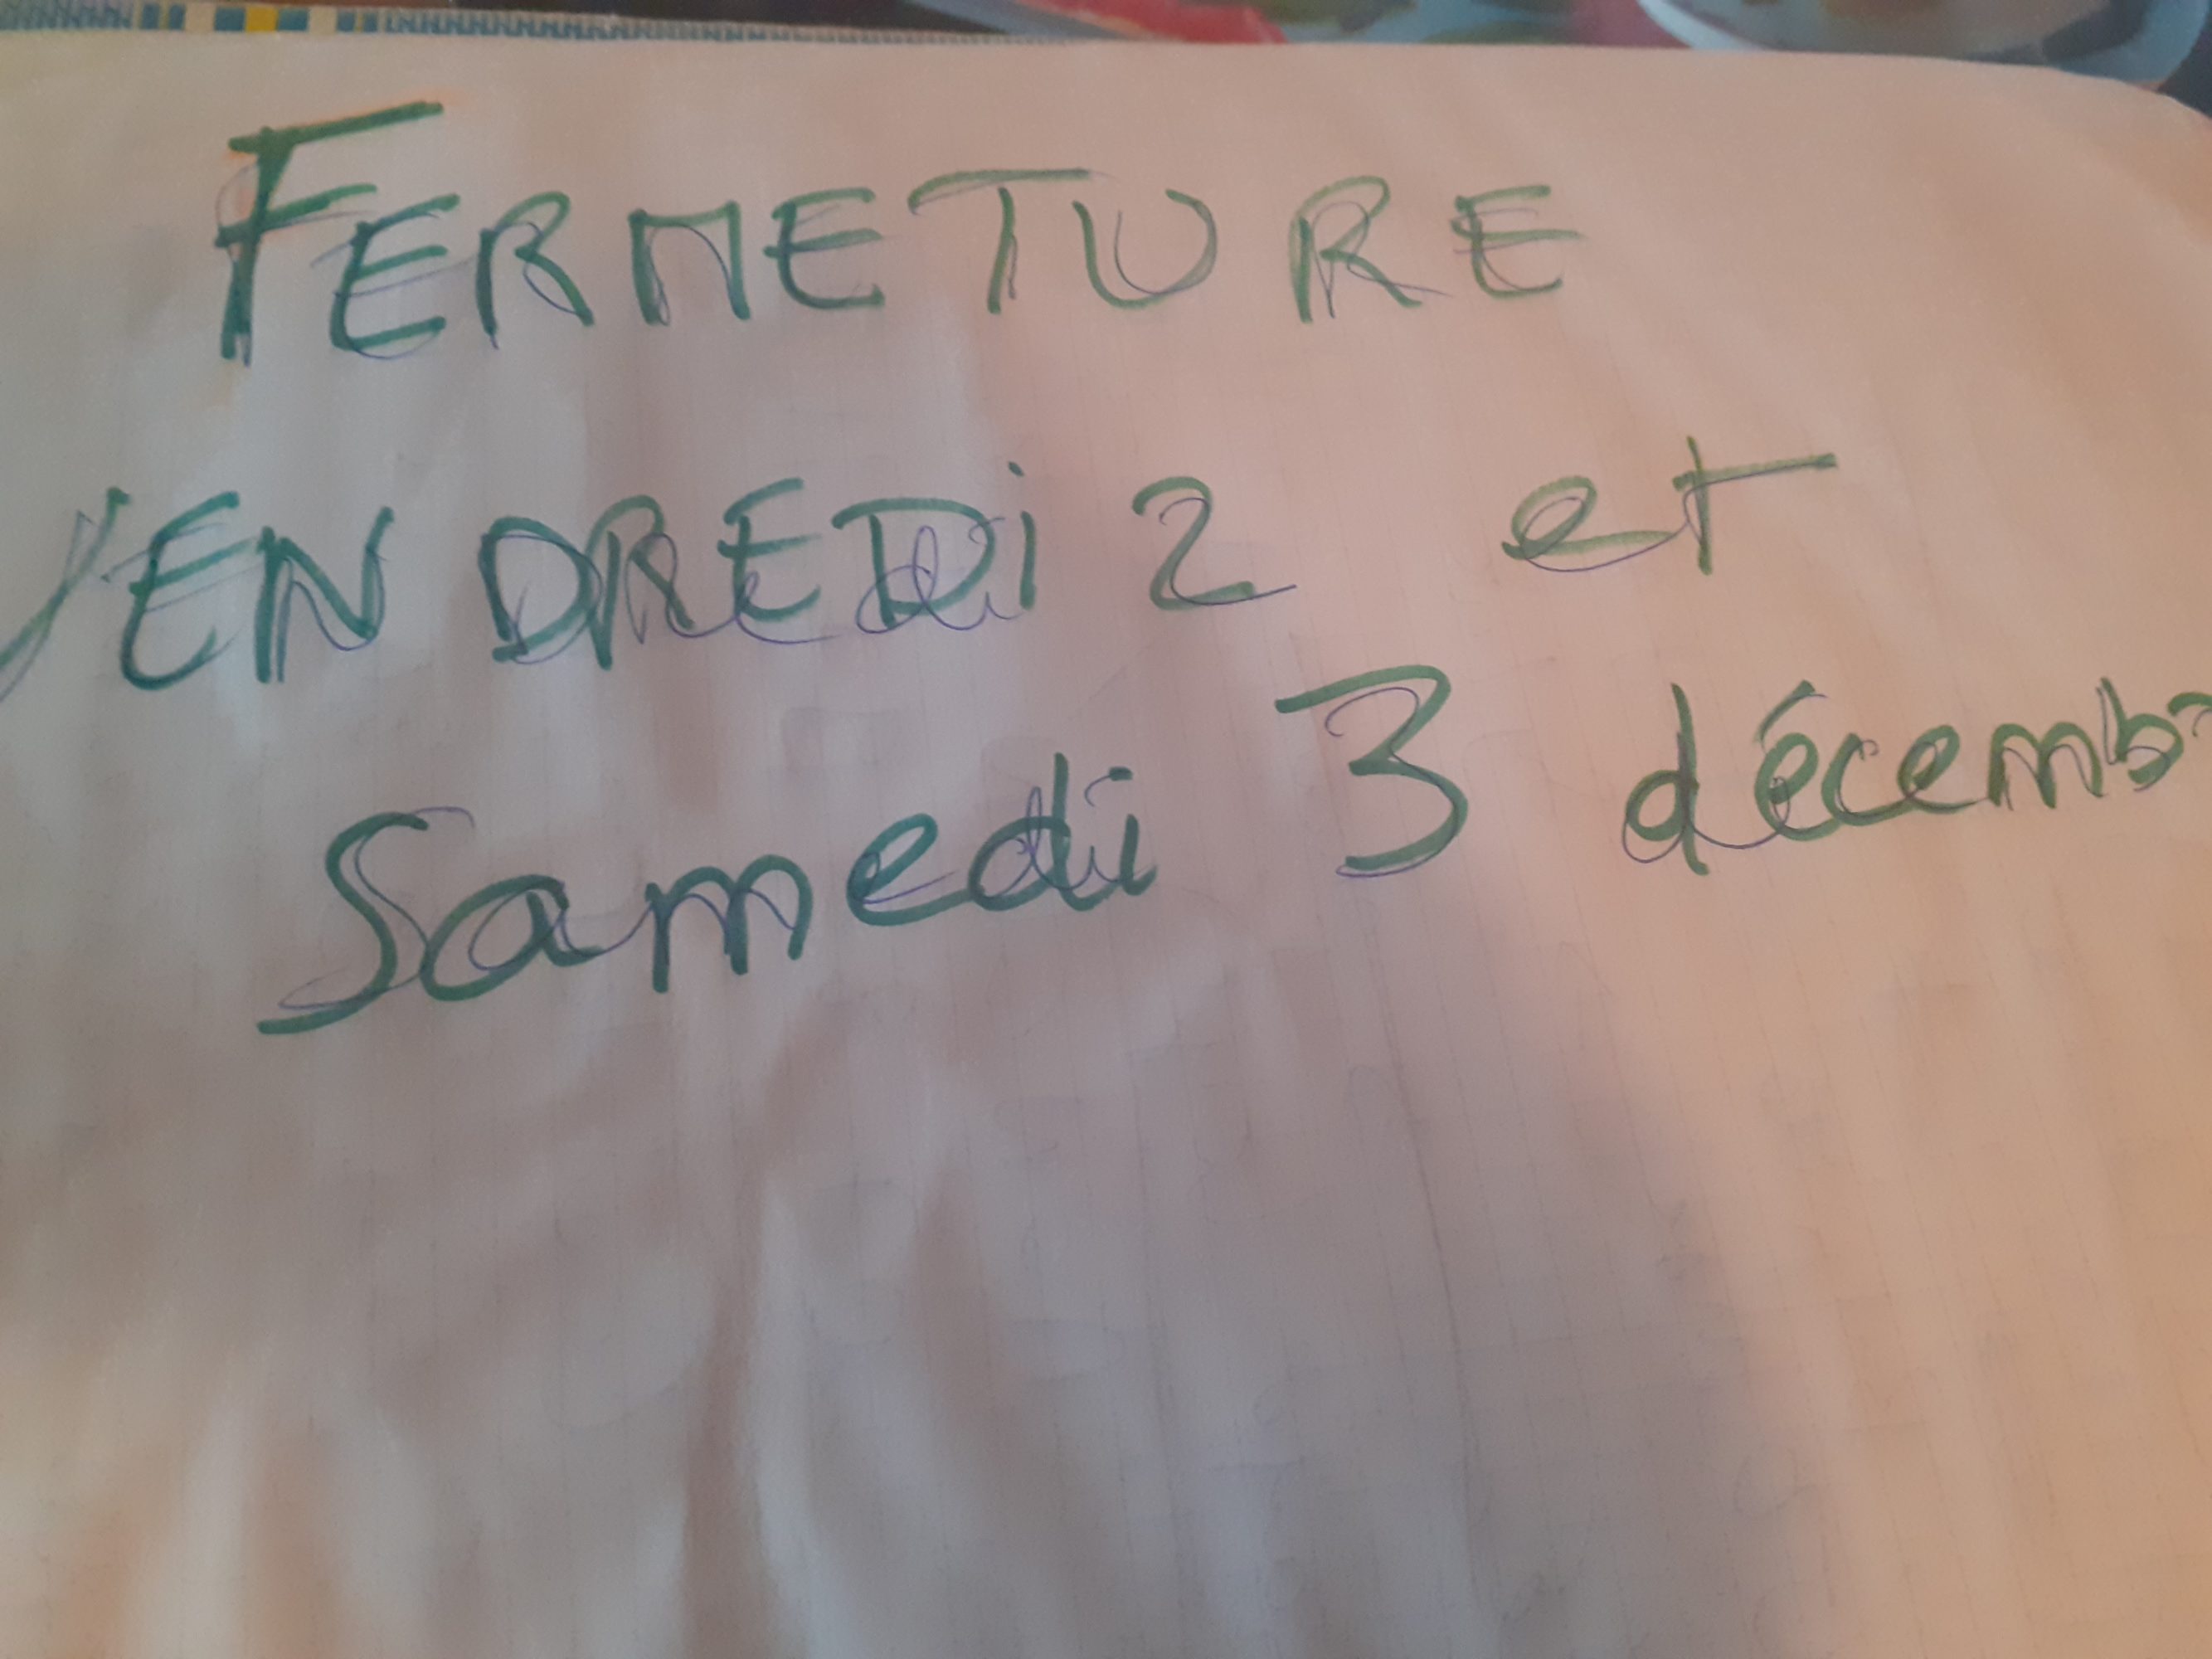 FERMETURE
VENDREDi 2 et
Samedi 3 décemb